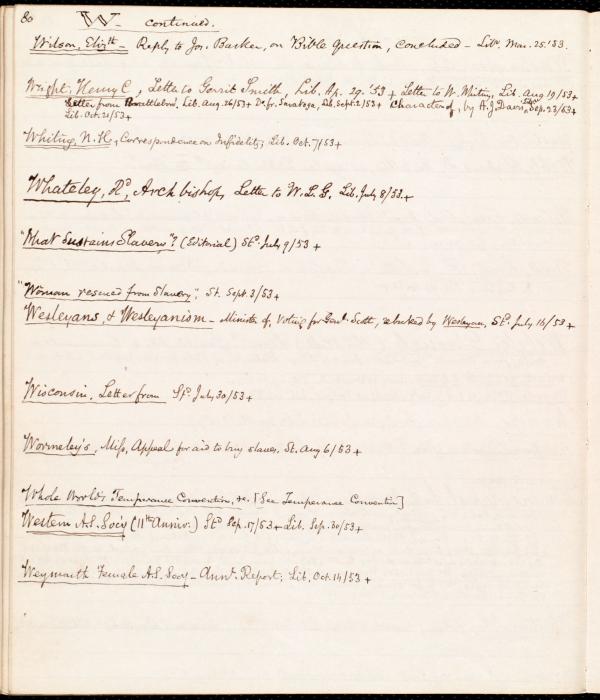 80 W. continued.
Wilson, Elizth - Reply to Jos. Barker, on Bible Question, concluded - Libr. Mar. 25.'53.
Wright, Henry C, Letter to Gerrit Smith, Lib. Ap. 29.'53 + Letter to N. Whiting, Lib. Aug 19/53 +
Letter from Brattleboro', Lib. Aug. 26/53 + Do. fr. Saratoga, Lib. Sept. 2/53 + Character of, by A.J. Davis, Sep. 23/53 +
Lib. Oct. 21/53 +
Whiting, N.H., Correspondence on Infidelity; Lib. Oct. 7/53 +
Whateley, Rd, Archbishop, Letter to W.L.G. Lib. July 8/53. +
"What Sustains Slavery"? (Editorial) Std. July 9/53 +
"Woman rescued from Slavery". St. Sept. 3/53 +
Wesleyans, & Wesleyanism - Minister of, Voting for Genl. Scott, rebuked by Wesleyan, Std. July 16/53 +
Wisconsin, Letter from Std. July 30/53 +
Wormeley's, Miss, Appeal for aid to buy slaves. St. Aug 6/53 +
Whole World's Temperance Convention, &c. [See Temperance Convention]
Western A.S. Soc'y (11th Anniv.) Std Sep. 17/53 + Lib. Sep. 30/53 +
Weymouth Female A.S. Socy - Annl. Report; Lib. Oct. 14/53 +